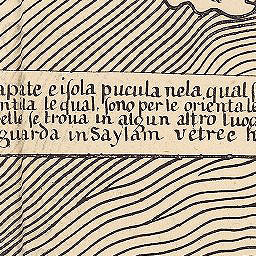 apate e isola pucula nela qual s
ntila le qual, sono per le orientale
elle se troua in algun altro luog
guarda in Saylam vetre e h